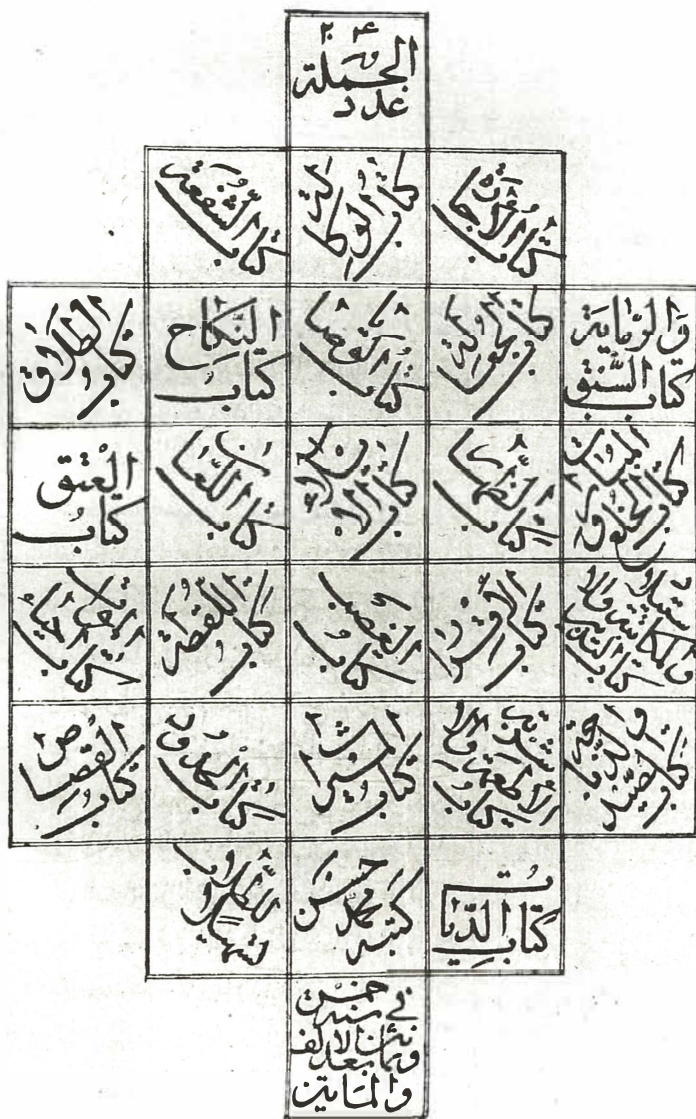 عدد الجملة ۲۴
كتاب الاجارة
كتاب الوكالة
كتاب الشفعة
كتاب السبق والرماية
كتاب الحوالة
كتاب القضا
كتاب النكاح
كتاب الطلاق
كتاب الخلع والمبارات
كتاب الظهار
كتاب الايلاء
كتاب اللعان
كتاب العتق
كتاب التدبير والمكاتبة والاستيلاد
كتاب الاقرار
كتاب الغصب
كتاب اللقطة
كتاب احياء الموات
كتاب الصيد والذباحة
كتاب الاطعمة والاشربة
كتاب الميراث
كتاب الحدود
كتاب القصاص
كتاب الديات
كتبه محمد حسن
تسهيلا للطلاب
في سنة خمس
وثمانين بعد الالف
والماتين